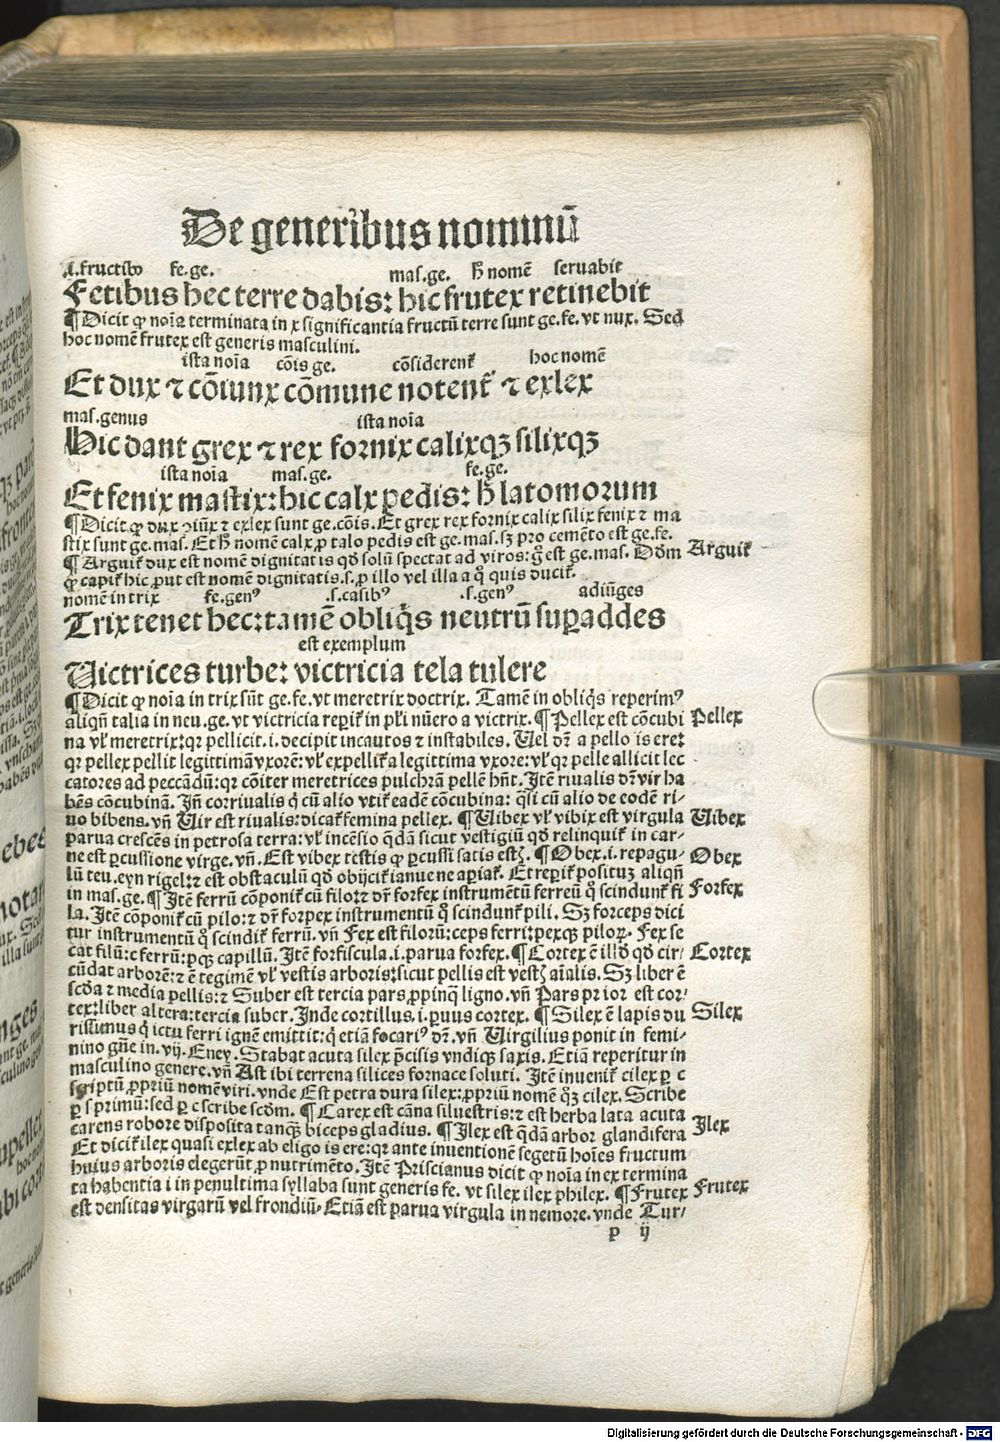 De generibus nominū
.i. fructibꝰ fe.ge. mas.ge. h̄ nomē seruabit
Fetibus hec terre dabis: hic frutex retinebit
¶ Dicit ꝙ noīa terminata in x significantia fructū terre sunt ge.fe. vt nux. Sed
hoc nomē frutex est generis masculini.
ista noīa cōis ge. cōsiderent᷑ hoc nomē
Et dux ⁊ cōiunx cōmune notent᷑ ⁊ exlex
mas.genus ista noīa
Hic dant grex ⁊ rex fornix calixqꝫ silixqꝫ
ista noīa mas.ge. fe.ge.
Et fenix mastix: hic calx pedis: h̄ latomorum
¶ Dicit ꝙ dux ꝯiūx ⁊ exlex sunt ge.cōis. Et grex rex fornix calix silix fenix ⁊ ma
stix sunt ge.mas. Et h̄ nomē calx ꝓ talo pedis est ge.mas. sꝫ pro cemēto est ge.fe.
¶ Arguit᷑ dux est nomē dignitatis qd̄ solū spectat ad viros: g̊ est ge.mas. Dōm Arguit᷑
ꝙ capit᷑ hic ꝓut est nomē dignitatis .s. ꝓ illo vel illa a q̊ quis ducit᷑.
nomē in trix fe.genꝰ .s.casibꝰ .s.genꝰ adiūges
Trix tenet hec: tamē obliq̄s neutrū suꝑaddes
est exemplum
Victrices turbe: victricia tela tulere
¶ Dicit ꝙ noīa in trix sūt ge.fe. vt meretrix doctrix. Tamē in obliq̄s reperimꝰ
aliqñ talia in neu.ge. vt victricia reꝑit᷑ in pl̄i nūero a victrix. ¶ Pellex est cōcubi Pellex
na vl̓ meretrix: qꝛ pellicit .i. decipit incautos ⁊ instabiles. Vel dr̄ a pello is ere:
qꝛ pellex pellit legittimā vxorē: vl̓ expellit᷑ a legittima vxore: vl̓ qꝛ pelle allicit lec
catores ad peccādū: qꝛ cōiter meretrices pulchrā pellē hn̄t. Itē riualis dr̄ vir ha
bēs cōcubinā. Iñ corriualis q̇ cū alio vtit᷑ eadē cōcubina: q̄si cū alio de eodē ri⸗
uo bibens. vñ Vir est riualis: dicat᷑ femina pellex. ¶ Vibex vl̓ vibix est virgula Vibex
parua crescēs in petrosa terra: vl̓ incēsio q̄dā sicut vestigiū qd̄ relinquit᷑ in car⸗
ne est ꝑcussione virge. vñ. Est vibex testis ꝙ ꝑcussi satis estꝭ. ¶ Obex .i. repagu⸗ Obex
lū teu. eyn rigel: ⁊ est obstaculū qd̄ obijcit᷑ ianue ne aꝑiat᷑. Et reꝑit᷑ posituꝫ aliqñ
in mas.ge. ¶ Itē ferrū cōponit᷑ cū filo: ⁊ dr̄ forfex instrumētū ferreū q̊ scindunt᷑ fi Forfex
la. Itē cōponit᷑ cū pilo: ⁊ dr̄ forpex instrumentū q̊ scindunt᷑ pili. Sꝫ forceps dici
tur instrumentū q̊ scindit᷑ ferrū. vñ Fex est filorū: ceps ferri: pexqꝫ pilorꝝ. Fex se
cat filū: c ferrū: pqꝫ capillū. Itē forfiscula .i. parua forfex. ¶ Cortex ē illd̓ qd̄ cir⸗ Cortex
cūdat arborē: ⁊ ē tegimē vl̓ vestis arboris: sicut pellis est vestꝭ aīalis. Sꝫ liber ē
scd̄a ⁊ media pellis: ⁊ Suber est tercia pars ꝓpinq̄ ligno. vñ Pars prior est cor⸗
tex: liber altera: tercia suber. Inde cortillus .i. puus cortex. ¶ Silex ē lapis du Silex
rissimus q̇ ictu ferri ignē emittit: q̇ etiā focariꝰ dr̄. vñ Virgilius ponit in femi⸗
nino gñe in .vij. Eney. Stabat acuta silex p̄cisis vndiqꝫ saxis. Etiā reperitur in
masculino genere. vñ Ast ibi terrena silices fornace soluti. Itē inuenit᷑ cilex ꝑ c
scriptū ꝓpriū nomē viri. vnde Est petra dura silex: ꝓpriū nomē qꝫ cilex. Scribe
ꝑ s primū: sed ꝑ c scribe scd̄m. ¶ Carex est cāna siluestris: ⁊ est herba lata acuta
carens robore disposita tanqꝫ biceps gladius. ¶ Ilex est q̄dā arbor glandifera Ilex
Et dicit᷑ ilex quasi exlex ab eligo is ere: qꝛ ante inuentionē segetū hoīes fructum
huius arboris elegerūt ꝓ nutrimēto. Itē Priscianus dicit ꝙ noīa in ex termina
ta habentia i in penultima syllaba sunt generis fe. vt silex ilex philex. ¶ Frutex Frutex
est densitas virgarū vel frondiū. Etiā est parua virgula in nemore. vnde Tur⸗
p ij
Digitalisierung gefördert durch die Deutsche Forschungsgemeinschaft - DFG